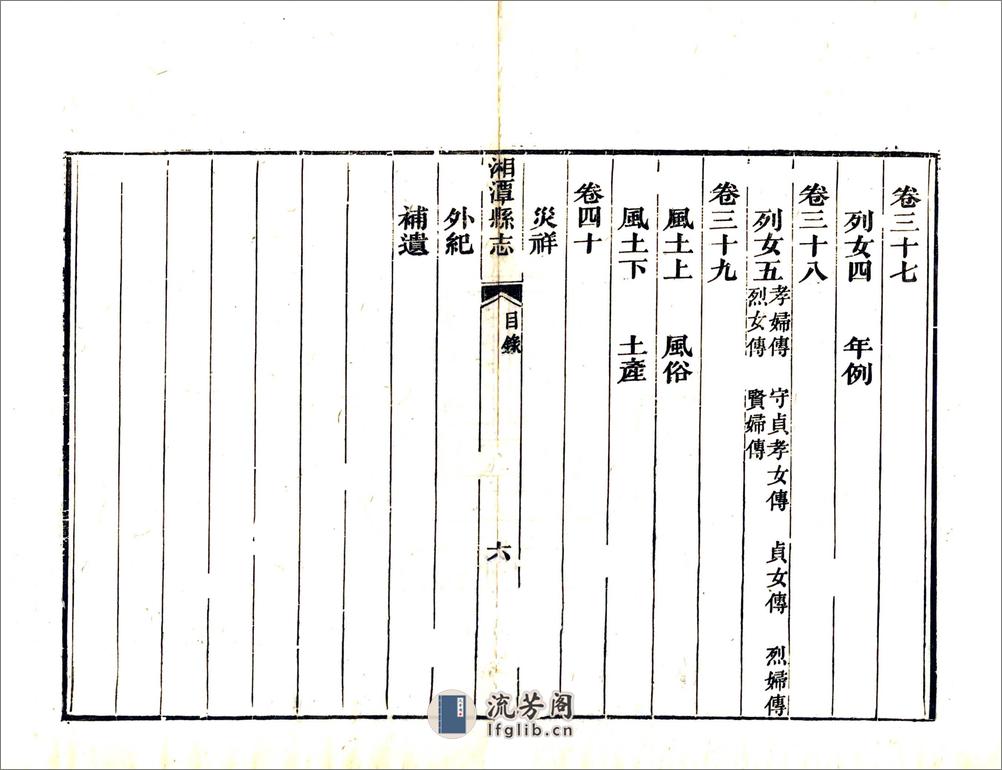 卷三十七
列女四 年例
卷三十八
列女五 孝婦傳 守貞孝女傳 貞女傳 烈婦傳
烈女傳 賢婦傳
卷三十九
風土上 風俗
風土下 土產
卷四十
災祥
湘潭縣志 目錄 六
外紀
補遺
流芳阁
lfglib.cn